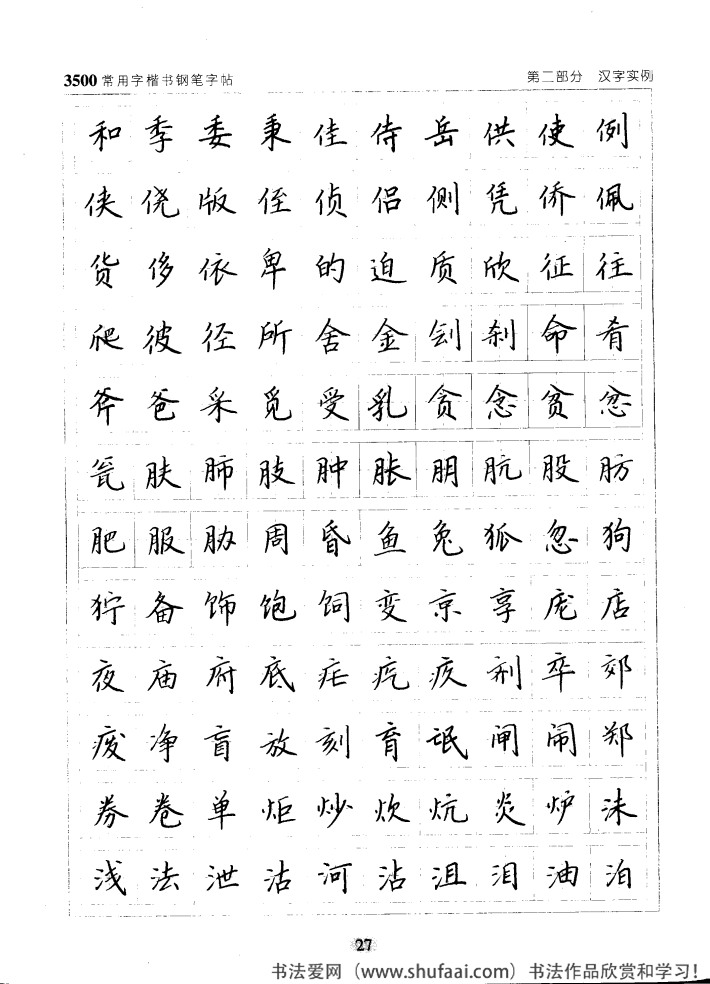 3500常用字楷书钢笔字帖 第二部分 汉字实例
和季委秉佳侍岳供使例
侠侥版侄侦侣侧凭侨佩
货侈依卑的迫质欣征往
爬彼径所舍金刽刹命肴
斧爸采觅受乳贪念贫忿
瓮肤肺肢肿胀朋肮股肪
肥服胁周昏鱼兔狐忽狗
狞备饰饱饲变京享庞店
夜庙府底疟疙疚剂卒郊
废净盲放刻育氓闸闹郑
券卷单炬炒炊炕炎炉沫
浅法泄沽河沾沮泪油泊
27
书法爱网（www.shufaai.com）书法作品欣赏和学习！